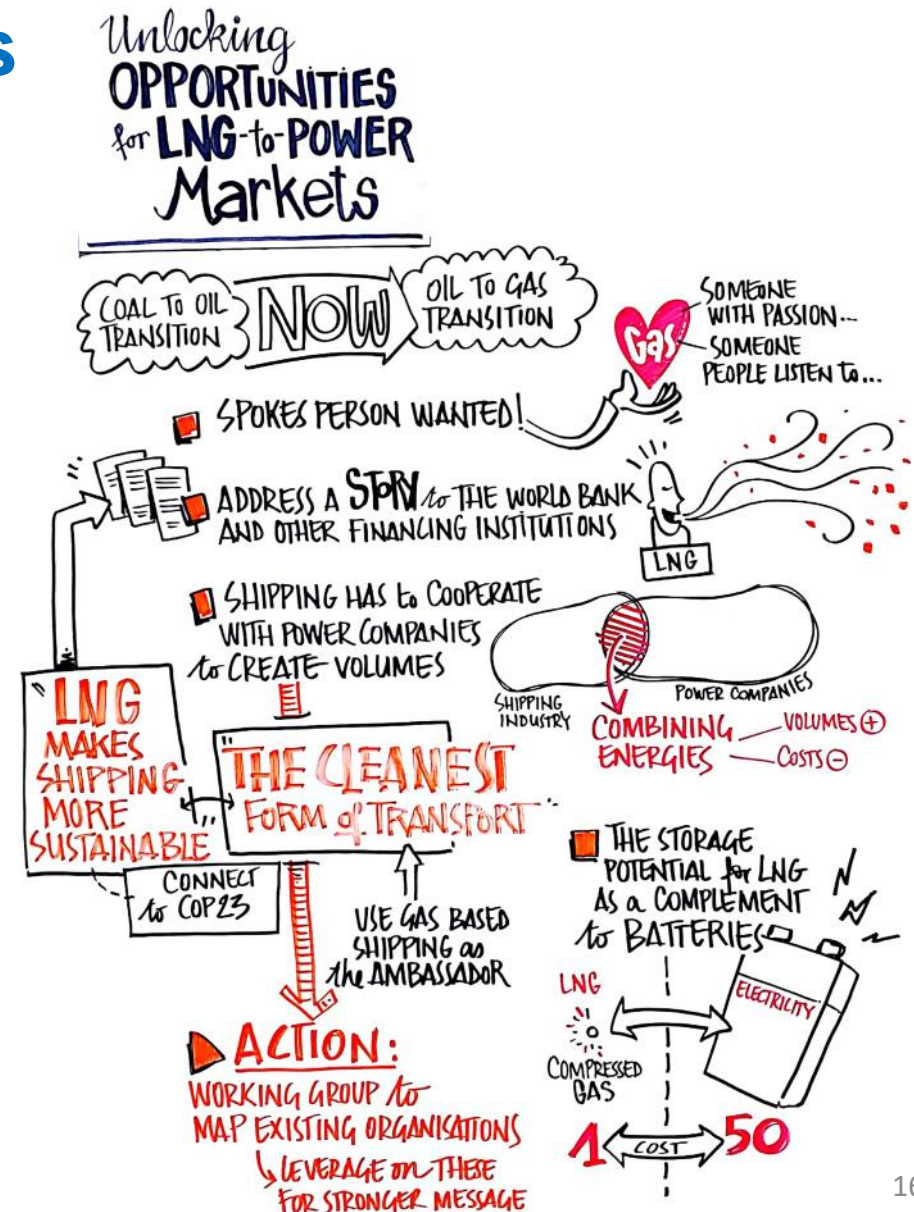 s
Unlocking
OPPORTUNITIES
for LNG-to-POWER
Markets
COAL TO OIL
TRANSITION
NOW
OIL TO GAS
TRANSITION
Gas
SOMEONE
WITH PASSION...
SOMEONE
PEOPLE LISTEN to...
SPOKES PERSON WANTED!
ADDRESS A STORY to THE WORLD BANK
AND OTHER FINANCING INSTITUTIONS
LNG
SHIPPING HAS to COOPERATE
WITH POWER COMPANIES
to CREATE VOLUMES
SHIPPING
INDUSTRY
POWER COMPANIES
COMBINING
ENERGIES
VOLUMES +
COSTS -
"LNG
MAKES
SHIPPING
MORE
SUSTAINABLE"
"THE CLEANEST
FORM of TRANSPORT"
CONNECT
to COP23
USE GAS BASED
SHIPPING as
the AMBASSADOR
THE STORAGE
POTENTIAL for LNG
AS a COMPLEMENT
to BATTERIES
LNG
COMPRESSED
GAS
ELECTRICITY
1 COST 50
ACTION:
WORKING GROUP to
MAP EXISTING ORGANISATIONS
LEVERAGE ON THESE
FOR STRONGER MESSAGE
16